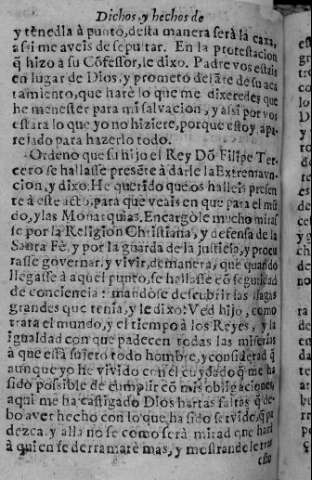 Dichos, y hechos de
y tenedla à punto, desta manera serà la caxa,
assi me aveis de sepultar. En la protestacion
q̃ hizo a su Cõfessor, le dixo. Padre vos estais
en lugar de Dios, y prometo delãte de su aca
tamiento, que harè lo que me dixeredes que
he menester para mi salvacion, y assi por vos
estarà lo que yo no hiziere, porque estoy apa
rejado para hazerlo todo.
Ordenò que su hijo el Rey Dõ Filipe Ter
cero se hallasse presẽte à darle la Extremavn
cion, y dixo: He querido que os halleis presen
te à este acto, para que veais en que para el mũ
do, y las Monarquias. Encargòle mucho miras
se por la Religion Christiana, y defensa de la
Santa Fè, y por la guarda de la justicia, y procu
rasse governar, y vivir, de manera, que quando
llegasse à aquel punto, se hallasse cõ seguridad
de conciencia: mandòse descubrir las llagas
grandes que tenia, y le dixo: Ved hijo, como
trata el mundo, y el tiempo à los Reyes, y la
igualdad con que padecen todas las miserias
à que està sujeto todo hombre, y considerad q̃
aunque yo he vivido con el cuydado q̃ me ha
sido possible de cumplir cõ mis obligaciones,
aqui me ha castigado Dios hartas faltas q̃ de-
bo aver hecho con lo que ha sido servido, q̃ pa
dezca, y allà no se como serà mirad que harà
à quien se derramàre mas, y mostrandole tras